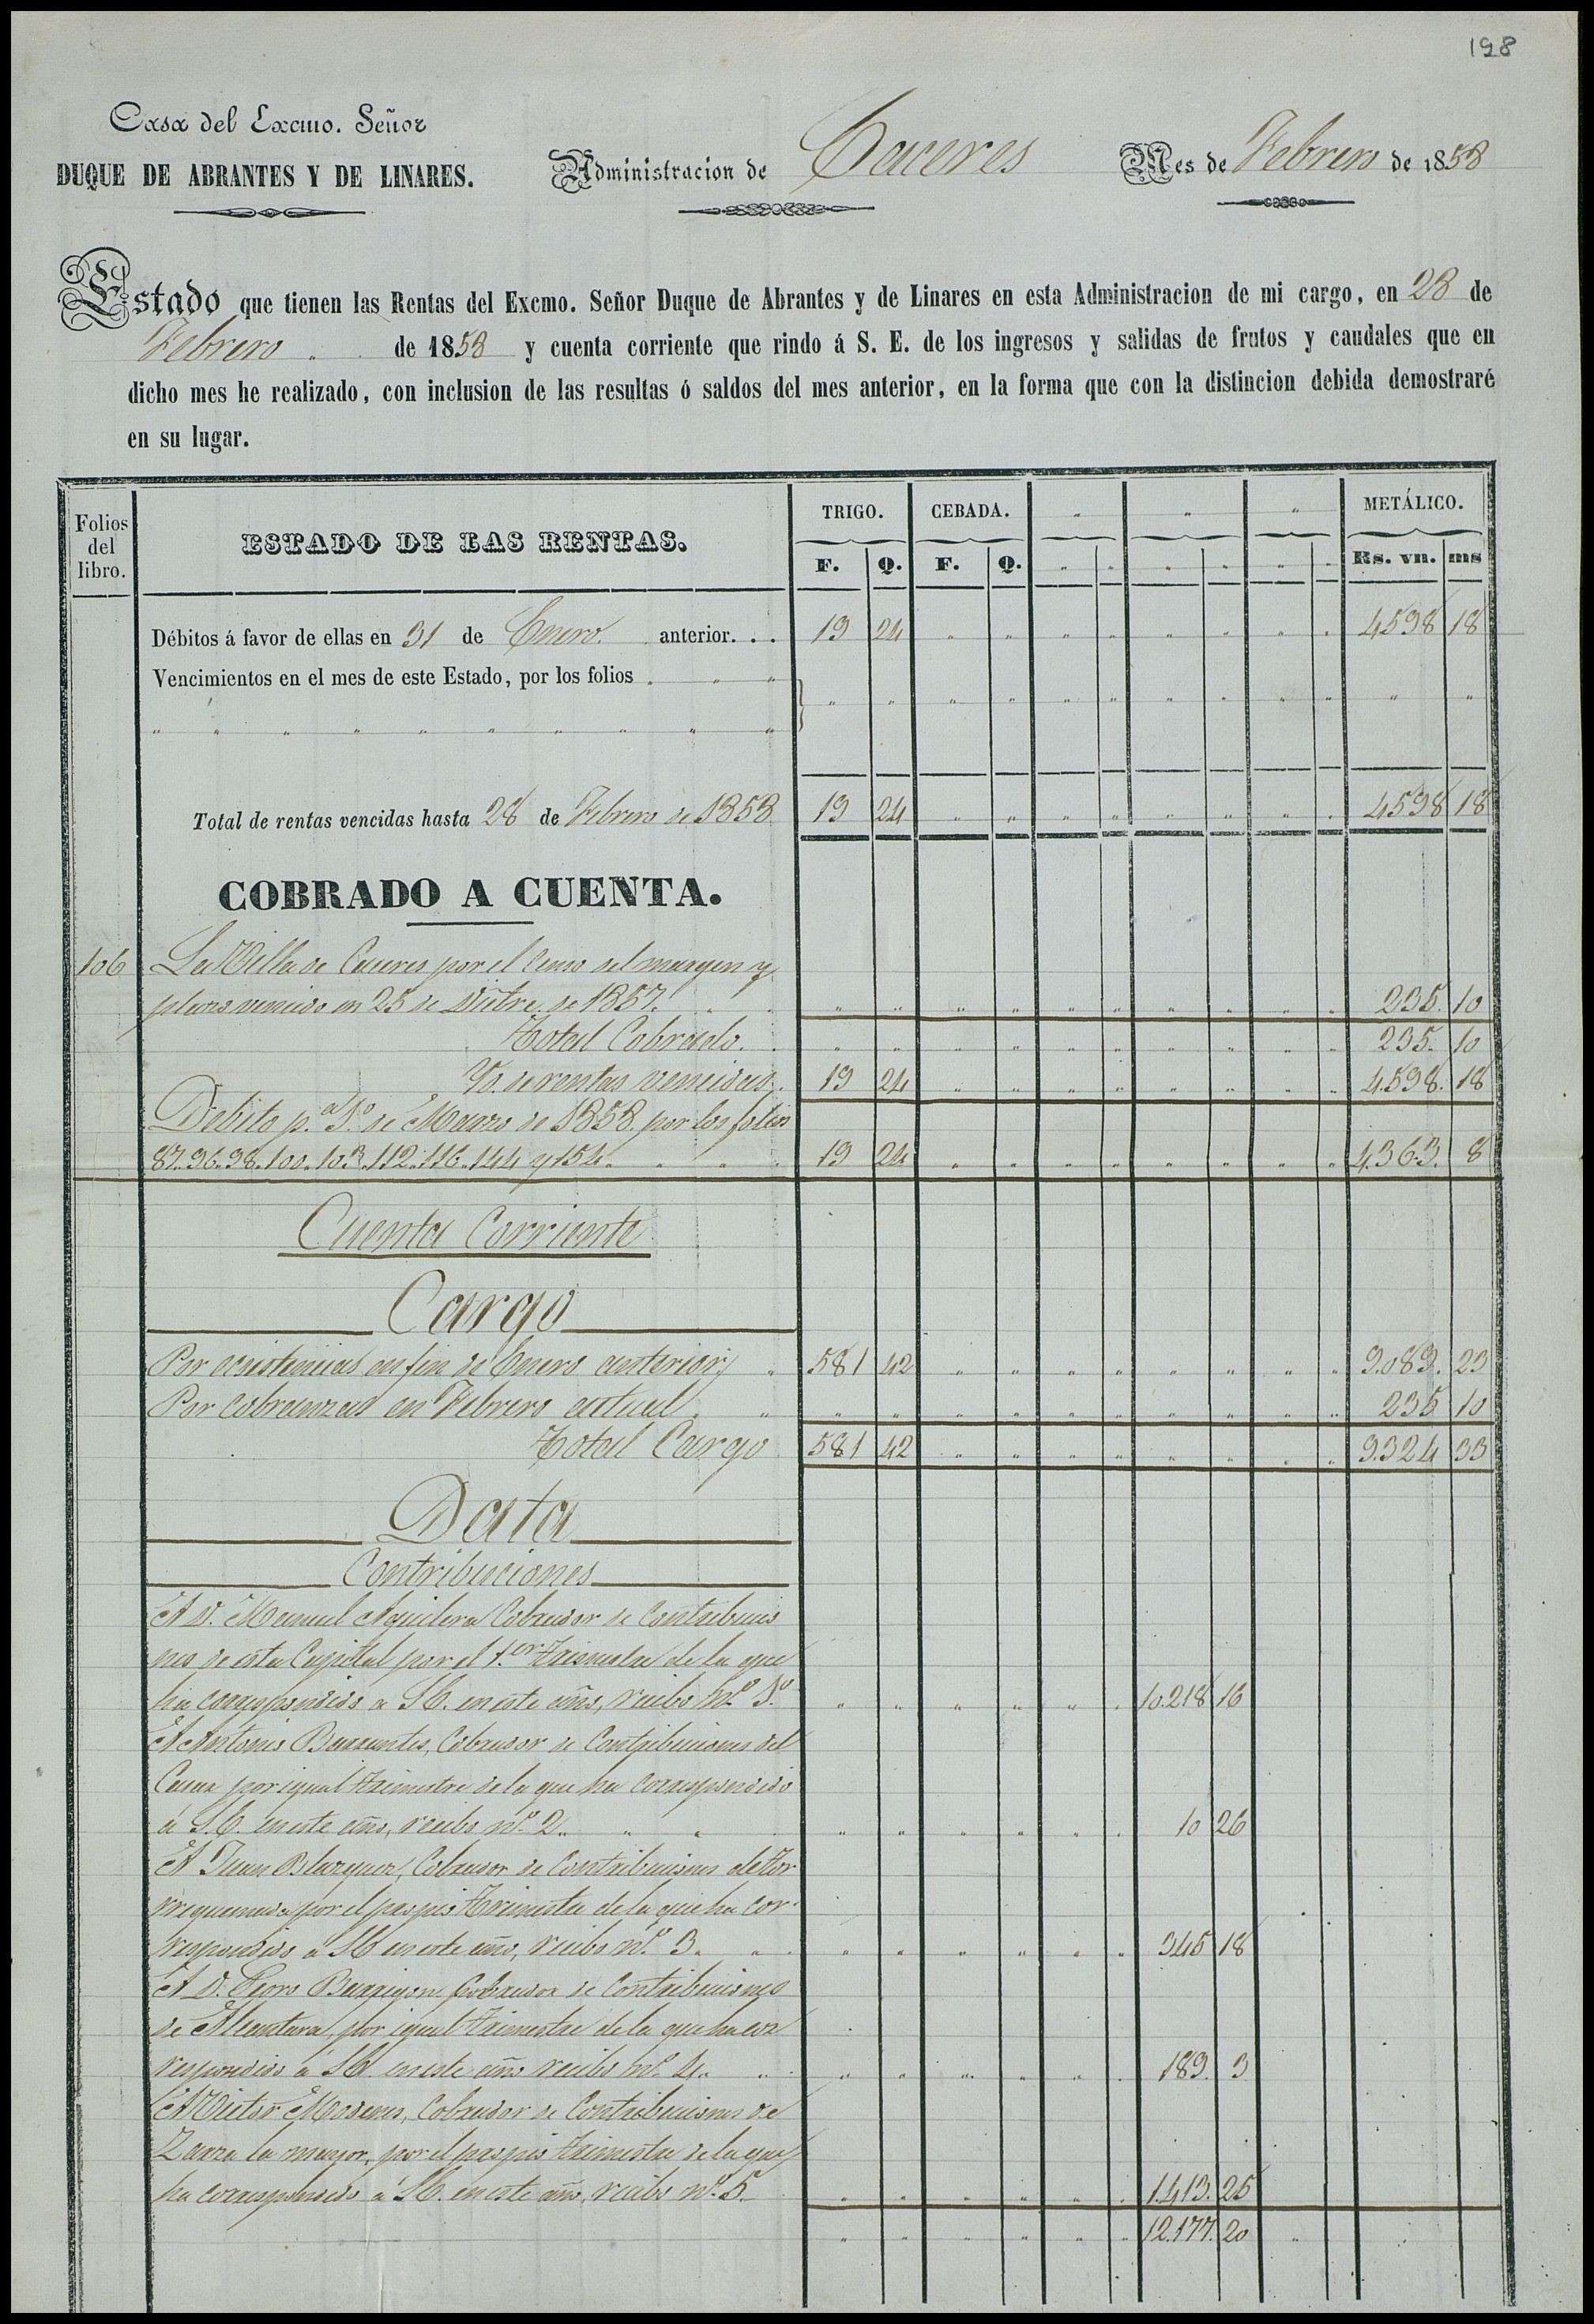 198
Casa del Excmo. Señor
DUQUE DE ABRANTES Y DE LINARES.
Administracion de Caceres
Mes de Febrero de 1858
Estado que tienen las Rentas del Excmo. Señor Duque de Abrantes y de Linares en esta Administracion de mi cargo, en 28 de
Febrero de 1858 y cuenta corriente que rindo á S. E. de los ingresos y salidas de frutos y caudales que en
dicho mes he realizado, con inclusion de las resultas ó saldos del mes anterior, en la forma que con la distincion debida demostraré
en su lugar.
Folios del libro.
ESTADO DE LAS RENTAS.
TRIGO. CEBADA. " " " METÁLICO.
F. Q. F. Q. " " " " " " Rs. vn. ms
Débitos á favor de ellas en 31 de Enero. anterior. . . 19 24 " " " " " " " " 4598 18
Vencimientos en el mes de este Estado, por los folios . " "
" " " " " " " " " " " " " " " " " " " " " "
Total de rentas vencidas hasta 28 de Febrero de 1858 19 24 " " " " " " " " 4598 18
COBRADO A CUENTA.
106 La Villa de Caceres por el Censo del margen y
plazo vencido en 25 de Dictre. de 1857. " " " " " " " " " " 235. 10
Total Cobrado. " " " " " " " " " " 235. 10
Yd. de rentas vencidas. 19 24 " " " " " " " " 4.598. 18
Debito p.ª 1.º de Marzo de 1858. por los folios
87..96..98..100..103..112..116..144 y 154. " " " 19 24 " " " " " " " " 4.363. 8
Cuenta Corriente
Cargo
Por existencias en fin de Enero anterior, " 581 42 " " " " " " " " 9.089. 23
Por cobranzas en Febrero actual. " " " " " " " " " " " 235 10
Total Cargo 581 42 " " " " " " " " 9.324 33
Data
Contribuciones
A D. Manuel Aguilera Cobrador de Contribucio
nes de esta Capital por el 1.er trimestre de la que
ha correspondido a S.E. en este año, recibo n.º 1.º " " " " " " 10.218 16
A Antonio Barrantes, Cobrador de Contribuciones del
Casar por igual trimestre de la que ha correspondido
a S.E. en este año, recibo n.º 2. " " " " " " " " 10 26
A Juan Blazquez, Cobrador de Contribuciones de Tor
requemada por el propio trimestre de la que ha cor-
respondido a S.E. en este año, recibo n.º 3. " " " " " " " 345 18
A D. Pedro Barrigon Cobrador de Contribuciones
de Alcantara, por igual trimestre de la que ha cor
respondido a S.E. en este año recibo n.º 4. " " " " " " " 189. 3
A Victor Modenes, Cobrador de Contribuciones de
Zarza la mayor, por el propio trimestre de la que
ha correspondido a S.E. en este año, recibo n.º 5. " " " " " " 1.413. 25
" " " " " " 12.177. 20 "